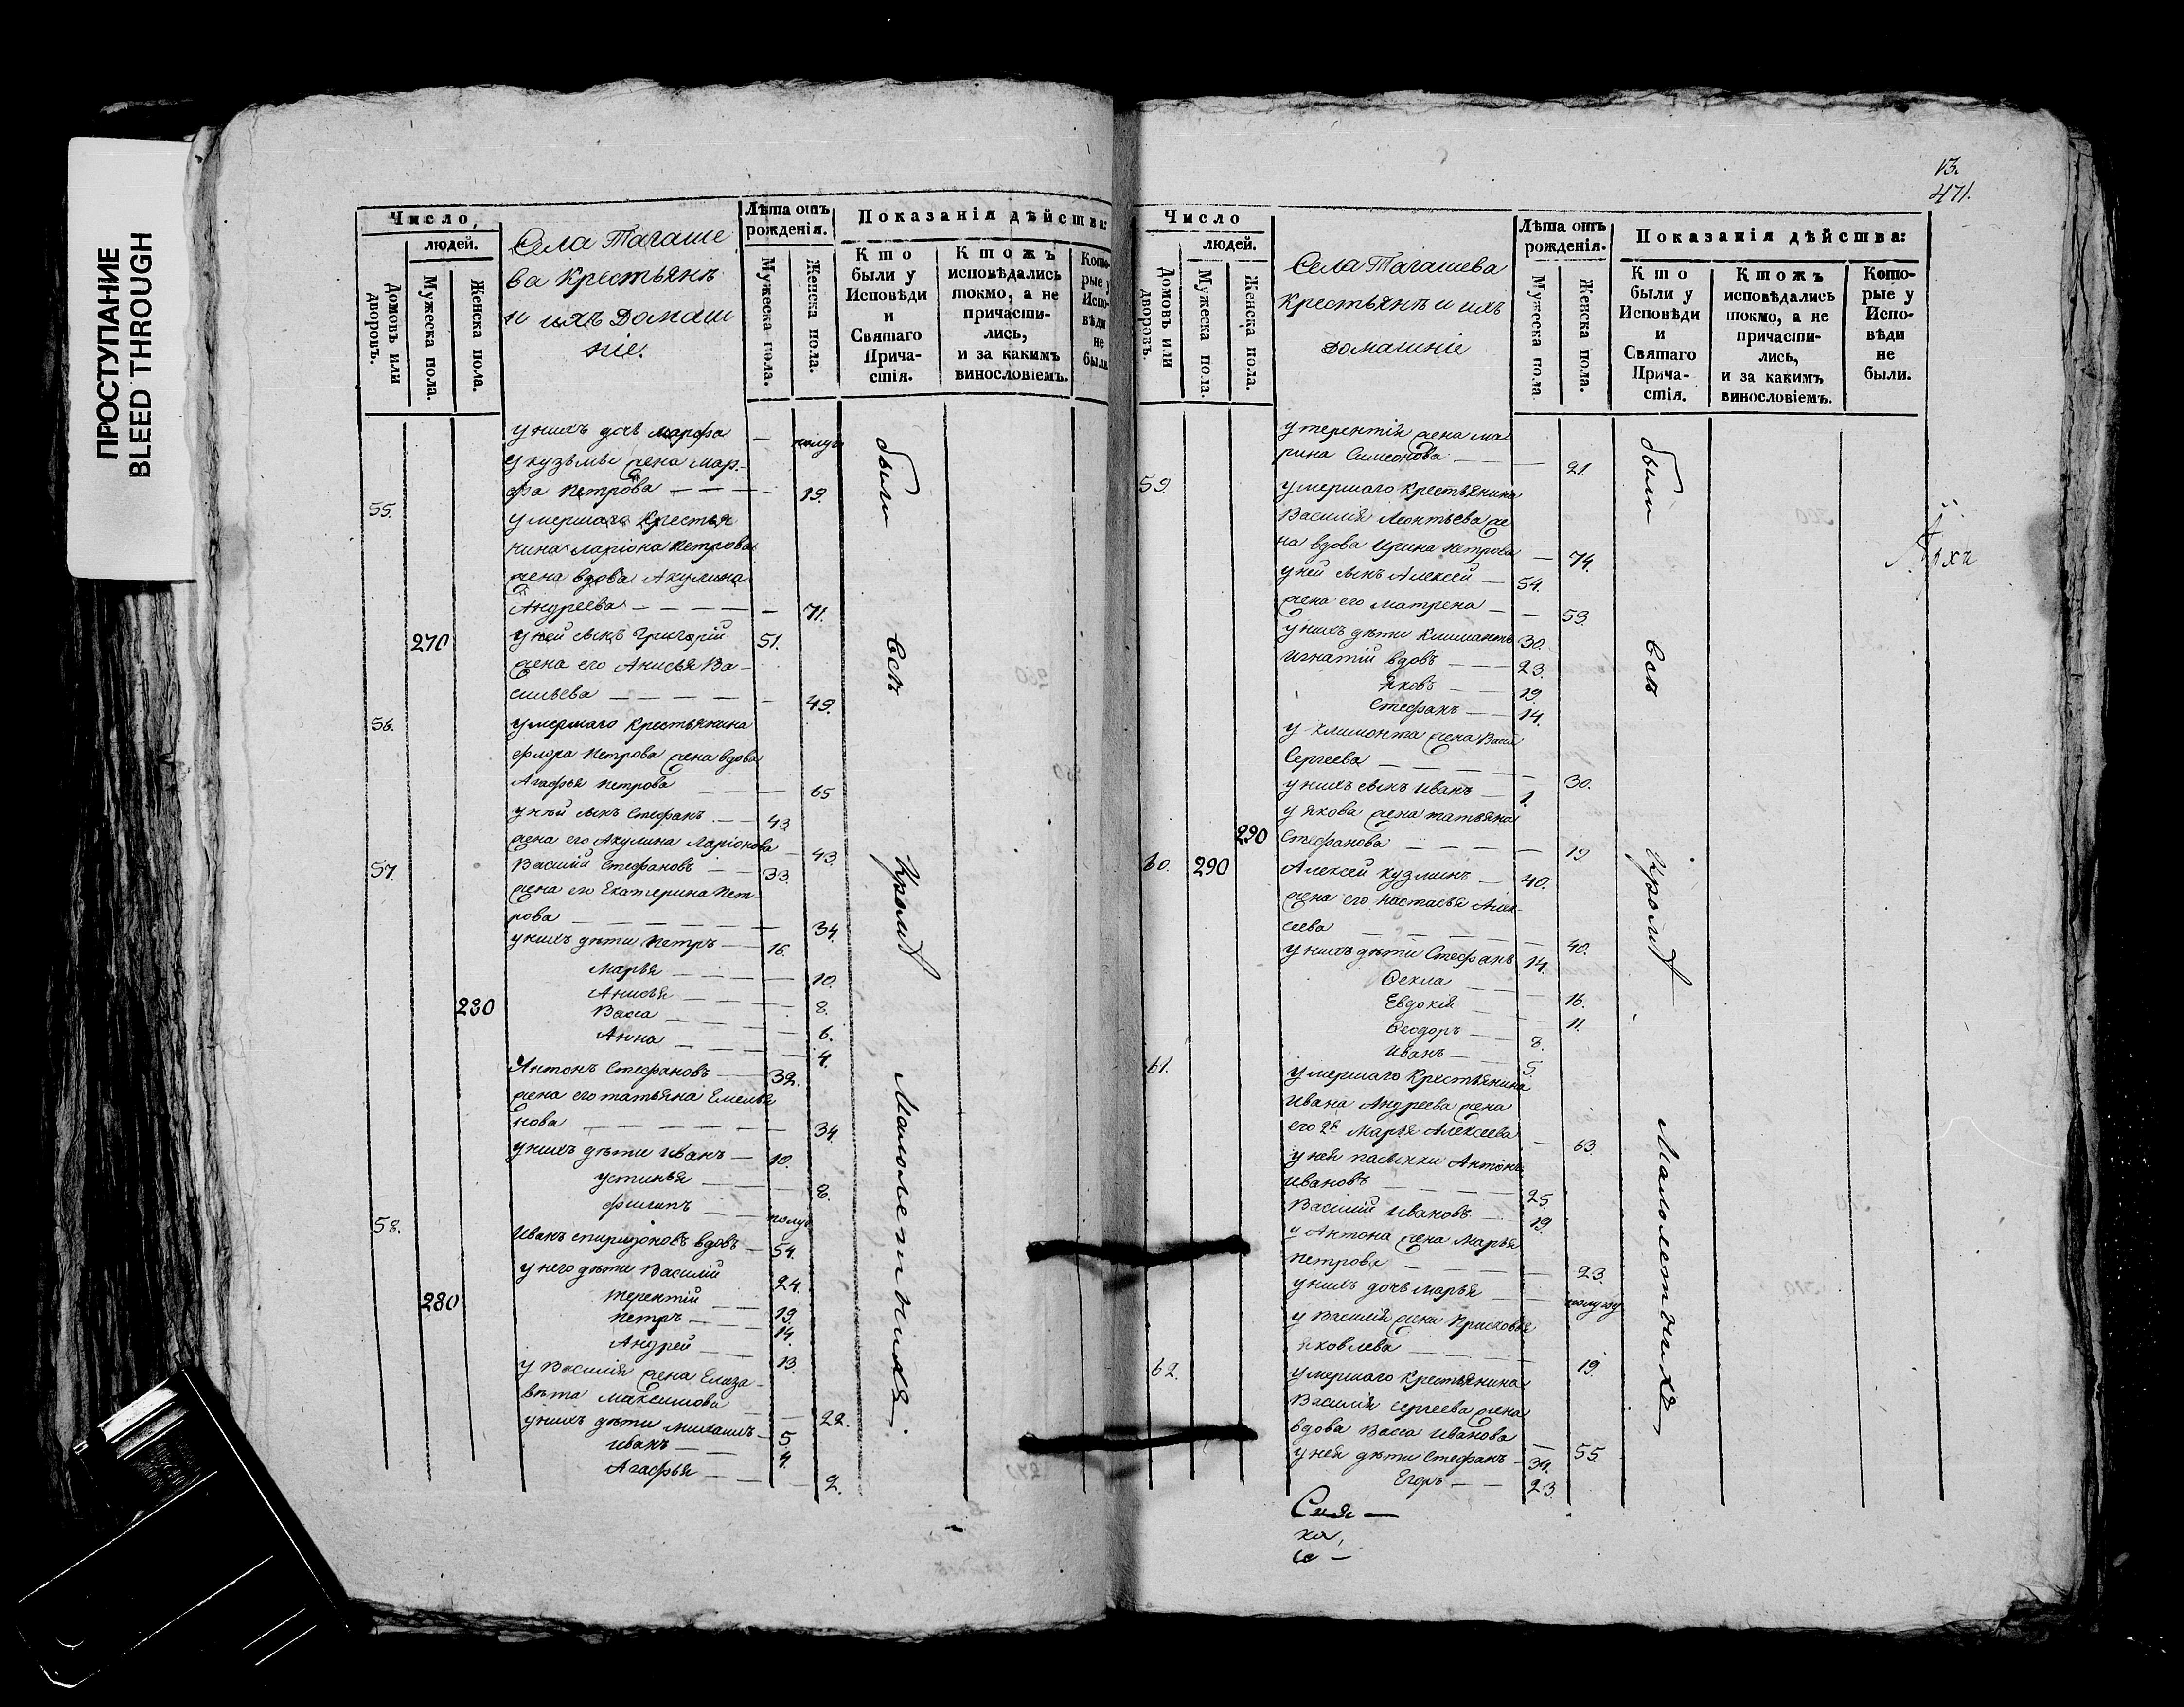 ПРОСТУПАНИЕ
BLEED THROUGH
Число,
людей.
Домовъ или дворовъ.
Мужеска пола.
Женска пола.
Села Тагаше
ва Крестьянъ
и ихъ Домаш
ніе.
Лѣта отъ
рожденія.
Мужеска пола.
Женска пола.
Показанія дѣйства:
Кто
были у
Исповѣди
и
Святаго
Прича-
стія.
Ктожъ
исповѣдались
токмо, а не
причасти-
лись,
и за какимъ
винословіемъ.
Кото-
рые у
Испо-
вѣди
не
были.
у нихъ дочь Марфа — полуг
у кузьмы жена Мар-
фа Петрова — — — 19.
55. умершаго Крестья
нина Ларіона Петрова
жена вдова Акулина
Андреева — — — — 71.
270 у ней сынъ Григорій 51.
жена его Анисья Ва-
сильева — — — — 49.
56. умершаго Крестьянина
Флора Петрова жена вдова
Агафья Петрова — — — 65
у ней сынъ Стефанъ — — 43.
жена его Акулина Ларіонова — 43.
57. Василій Стефановъ — — 33.
жена его Екатерина Пет-
рова — — — — — 34.
у нихъ дѣти Петръ — — 16.
Марья — — — 10.
Анисья — — — 8.
230 Васса — — — 6.
Анна — — — 4.
Антонъ Стефановъ — 32.
жена его татьяна Емелья
нова — — — — — 34.
у нихъ дѣти Иванъ — 10.
Устинья — — — 8.
Филипъ — — полуг
58. Иванъ спиридоновъ вдовъ — 54.
у него дѣти Василій 24.
280 Терентій — — 19.
Петръ — — 14.
Андрей — — 13.
у Василія жена Елиза-
вѣта Максимова — — 22.
у нихъ дѣти Михаилъ — 5.
Иванъ — — 4.
Агафья — — — 2.
были
всѣ
Кромѣ
Малолетнихъ.
13.
471.
Число
людей.
Домовъ или дворовъ.
Мужеска пола
Женска пола.
Села Тагашева
Крестьянъ и ихъ
домашніе
Лѣта отъ
рожденія.
Мужеска пола
Женска пола.
Показанія дѣйства:
Кто
были у
Исповѣди
и
Святаго
Прича-
стія.
Ктожъ
исповѣдались
токмо, а не
причасти-
лись,
и за какимъ
винословіемъ.
Кото-
рые у
Испо-
вѣди
не
были.
у терентія жена Ма
рина Симеонова — — 21.
59. умершаго Крестьянина
Василія Леонтьева же
на вдова Ирина Петрова — 74.
у ней сынъ Алексей — 54.
жена его Матрена — — 53.
у нихъ дѣти Климантъ 30.
Игнатій вдовъ — — 23.
Яковъ — — 19.
Стефанъ — — 14.
у Климонта жена
Сергеева — — — — — 30.
у нихъ сынъ Иванъ — 1.
у Якова жена татьяна
290 Стефанова — — — — 19.
60. 290 Алексей Кузминъ — 40.
жена его Настасья Алек-
сеева — — — — — 40.
у нихъ дѣти Стефанъ 14.
Ѳекла — — — 16.
Евдокія — — — 11.
Ѳеодоръ — — 8.
Иванъ — — 5.
61. умершаго Крестьянина
Ивана Андреева жена
его 2я Марья Алексеева — 63.
у нея пасынки Антонъ
Ивановъ — — — — 25.
Василій Ивановъ — 19.
у Антона жена Марья
Петрова — — — — 23.
у нихъ дочь Марья — — полугоду
у Василія жена Прасковья
Яковлева — — — — 19.
62. умершаго Крестьянина
Василія Сергеева жена
вдова Васса Иванова — 55.
у нея дѣти Стефанъ — 34.
Егоръ — — 23.
были
всѣ
Кромѣ
Малолетнихъ